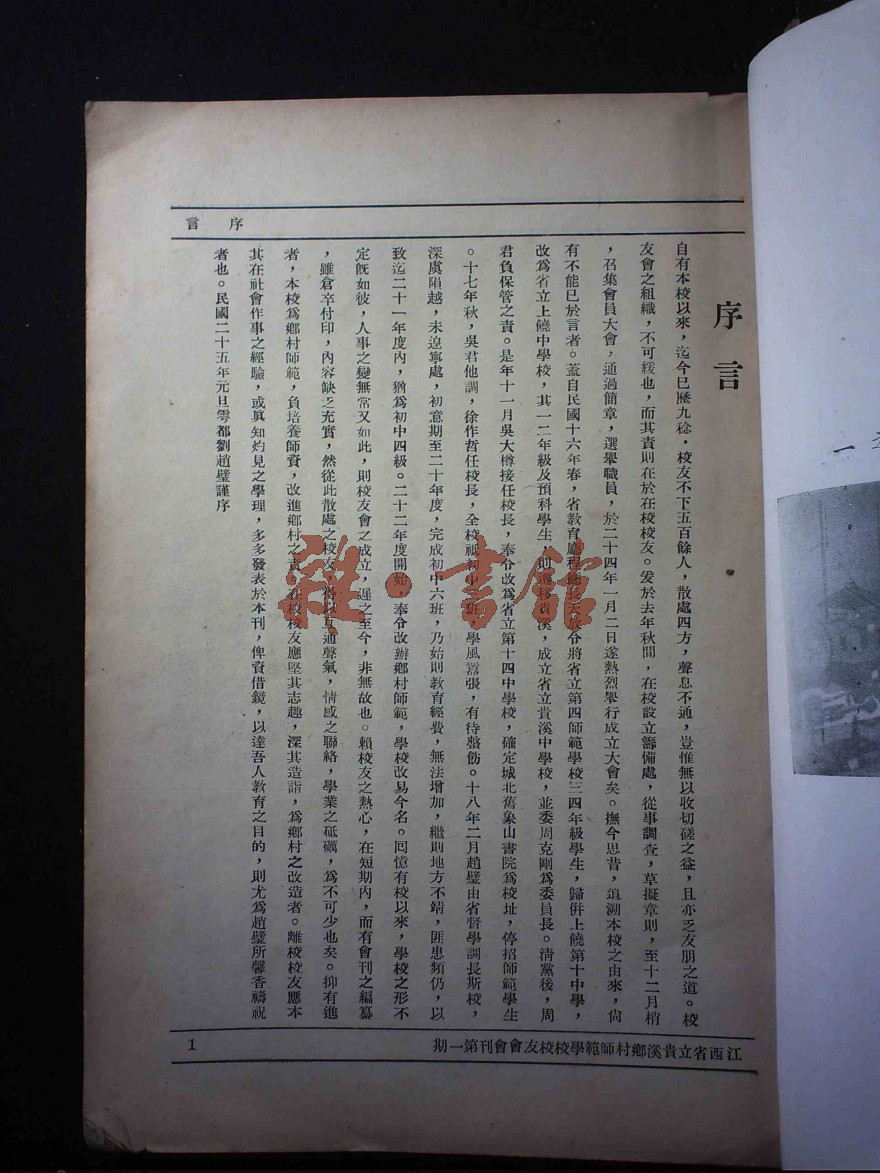 序言
序言
自有本校以來，迄今已歷九稔，校友不下五百餘人，散處四方，聲息不通，豈惟無以收切磋之益，且亦乏友朋之道。校
友會之組織，不可緩也，而其責則在於在校校友。爰於去年秋間，在校設立籌備處，從事調查，草擬章則，至十二月梢
，召集會員大會，通過簡章，選舉職員，於二十四年一月二日遂熱烈舉行成立大會矣。撫今思昔，追溯本校之由來，尙
有不能已於言者。蓋自民國十六年春，省教育廳程廳長天放令將省立第四師範學校三四年級學生，歸併上饒第十中學，
改爲省立上饒中學校，其一二年級及預科學生，則遷移貴溪，成立省立貴溪中學校，並委周克剛爲委員長。淸黨後，周
君負保管之責。是年十一月吳大樽接任校長，奉令改爲省立第十四中學校，確定城北舊象山書院爲校址，停招師範學生
。十七年秋，吳君他調，徐作哲任校長，全校祇初中三班，學風囂張，有待整飭。十八年二月趙璧由省督學調長斯校，
深虞隕越，未遑寧處，初意期至二十年度，完成初中六班，乃始則教育經費，無法增加，繼則地方不靖，匪患頻仍，以
致迄二十一年度內，猶爲初中四級。二十二年度開始，奉令改辦鄉村師範，學校改易今名。回憶有校以來，學校之形不
定旣如彼，人事之變無常又如此，則校友會之成立，遲之至今，非無故也。賴校友之熱心，在短期內，而有會刊之編纂
，雖倉卒付印，內容缺乏充實，然從此散處之校友，得以互通聲氣，情感之聯絡，學業之砥礪，爲不可少也矣。抑有進
者，本校爲鄉村師範，負培養師資，改進鄉村之責，在校校友應堅其志趣，深其造詣，爲鄉村之改造者。離校校友應本
其在社會作事之經驗，或眞知灼見之學理，多多發表於本刊，俾資借鏡，以達吾人教育之目的，則尤爲趙璧所馨香禱祝
者也。民國二十五年元旦雩都劉趙璧謹序
江西省立貴溪鄉村師範學校校友會會刊第一期
1
雜·書館